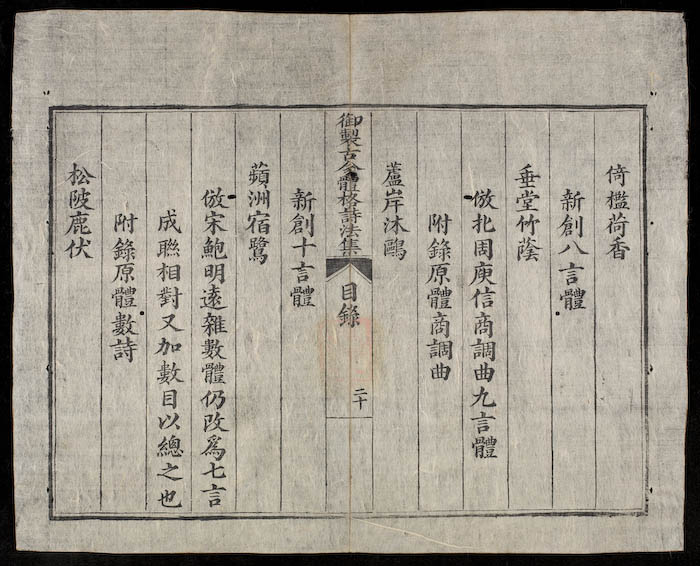 倚檻荷香
新創八言體
垂堂竹蔭
倣北周庾信商調曲九言體
附錄原體商調曲
蘆岸沐鷗
御製古今體格詩法集
目錄
二十
新創十言體
蘋洲宿鷺
倣宋鮑明遠雜數體仍改爲七言
成聯相對又加數目以總之也
附錄原體數詩
松陂鹿伏